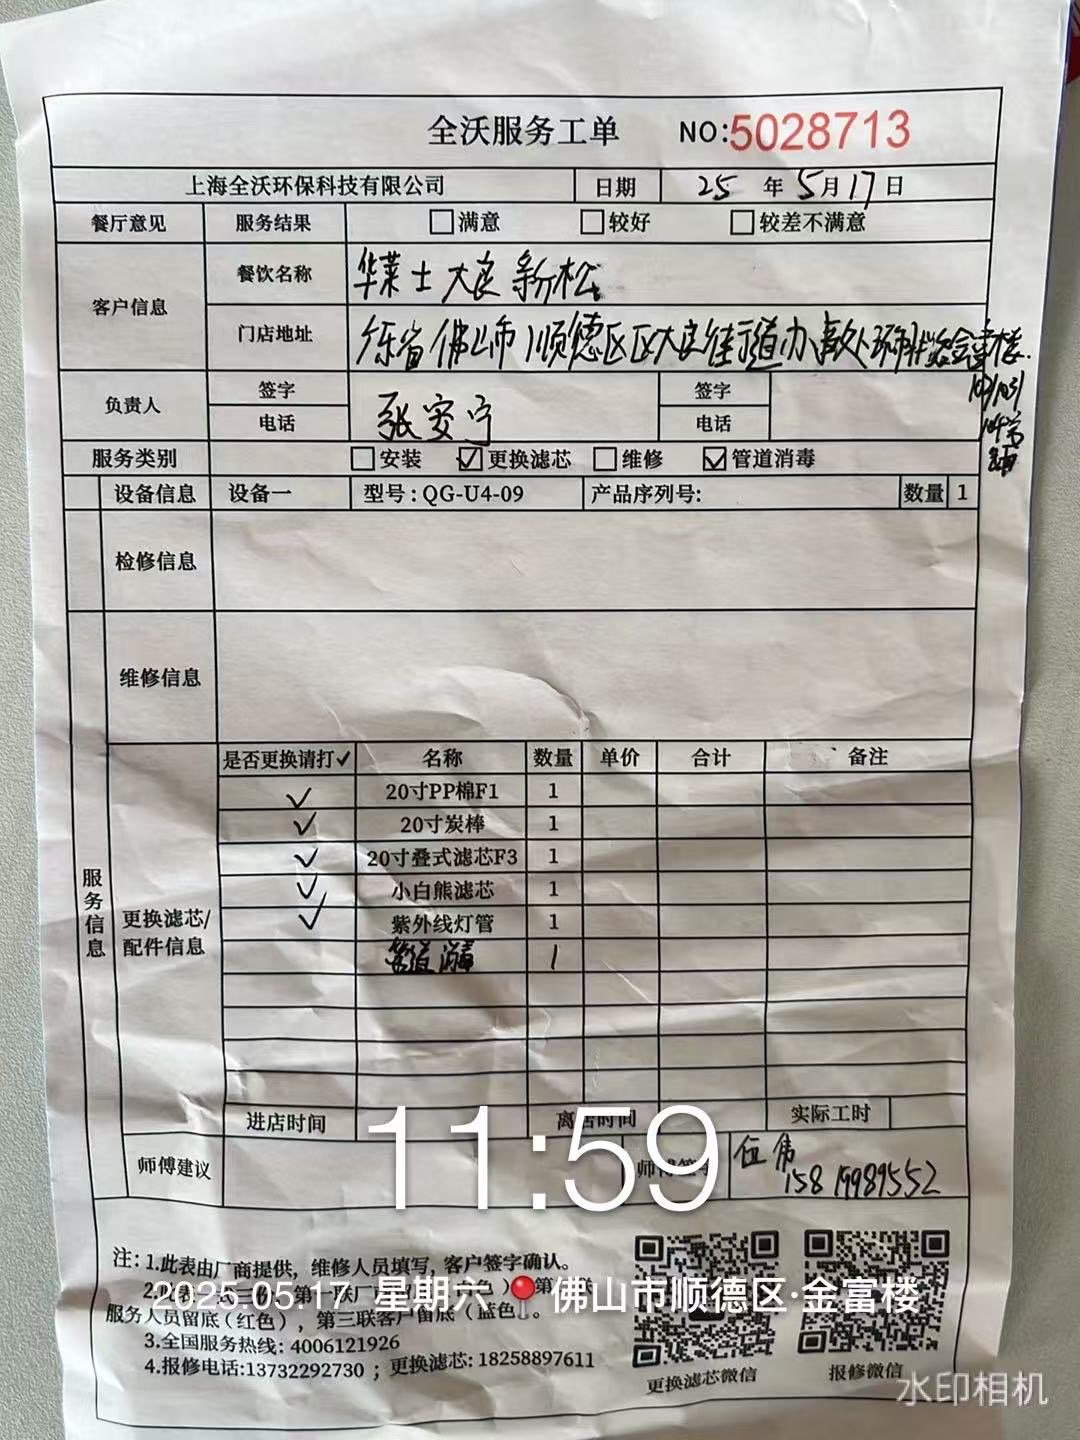 全沃服务工单 NO:5028713
上海全沃环保科技有限公司 日期 25 年 5月17日
餐厅意见 服务结果 □满意 □较好 □较差不满意
客户信息 餐饮名称 华莱士大良新松
门店地址 广东省佛山市顺德区区大良街道办事处
负责人 签字 张安宁 签字
电话 电话
服务类别 □安装 ☑更换滤芯 □维修 ☑管道消毒
设备信息 设备一 型号:QG-U4-09 产品序列号: 数量 1
检修信息
维修信息
服务信息
更换滤芯/配件信息
是否更换请打✓ 名称 数量 单价 合计 备注
✓ 20寸PP棉F1 1
✓ 20寸炭棒 1
✓ 20寸叠式滤芯F3 1
✓ 小白熊滤芯 1
✓ 紫外线灯管 1
管道消毒 1
进店时间 离店时间 实际工时
11:59
师傅建议 师傅签字 伍伟
15819989552
注:1.此表由厂商提供,维修人员填写,客户签字确认。
服务人员留底(红色),第三联客户留底(蓝色)。
2025.05.17 星期六 佛山市顺德区·金富楼
3.全国服务热线:4006121926
4.报修电话:13732292730;更换滤芯:18258897611
更换滤芯微信 报修微信
水印相机